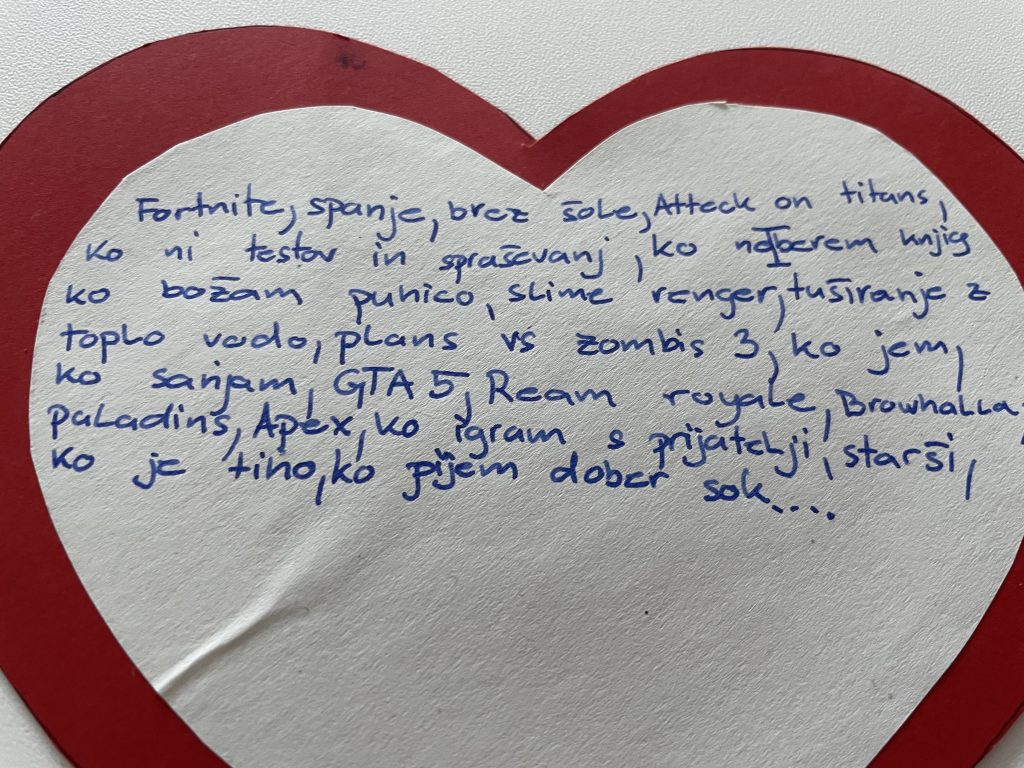 Fortnite, spanje, brez šole, Atteck on titans,
ko ni testov in spraševanj, ko ne berem knjig
ko božam puhico, slime renger, tuširanje z
toplo vodo, plans vs zombis 3, ko jem,
ko sanjam, GTA 5, Ream royale, Browhalla,
paladins, Apex, ko igram s prijatelji, starši,
ko je tiho, ko pijem dober sok....